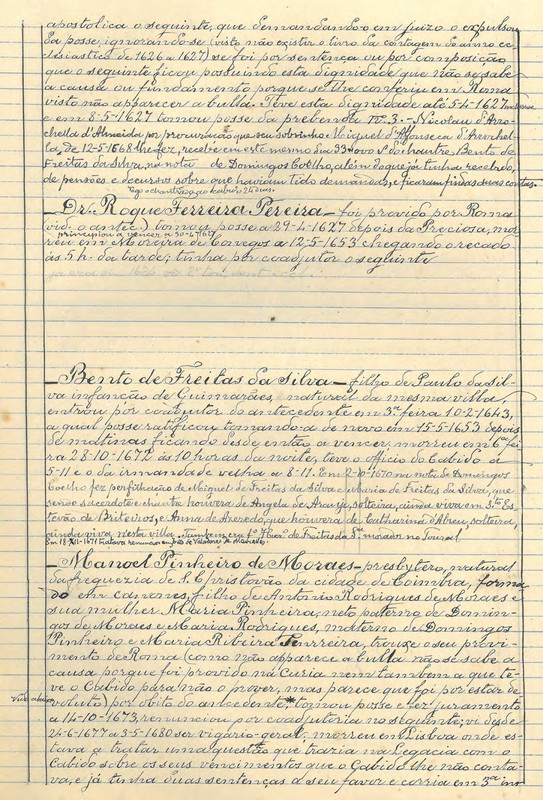 apostolica o seguinte, que demandando-o em juizo o expulsou
da posse, ignorando-se (visto não existir o livro da contagem do anno ec-
clesiastico de 1626 a 1627) se foi por sentença ou por composição
que o seguinte ficou possuindo esta dignidade que não se sabe
a causa ou fundamento porque se lhe conferiu em Roma
visto não apparecer a bulla. Teve esta dignidade até 5-4-1627
e em 8-5-1627 tomou posse da prebenda nº 3. - Nicolau d'Aro-
chella d'Almeida, por procuração que seu sobrinho Miguel d'Affonseca d'Arochel-
la, de 12-5-1668 lhe fez, recebe em este mesmo dia do novo chantre, Bento de
Freitas da Silva, na nota de Domingos Coelho, além do que já tinha recebido,
de pensões e decursos sobre que haviam tido demandas, e ficaram findas suas contas.
- Dr. Roque Ferreira Pereira - foi provido por Roma
(vid. o antec.) tomou posse a 29-4-1627 depois da Preciosa, mor-
principiou a vencer a 30-4-1627
reu em Moreira de Conegos a 12-5-1653 chegando o recado
ás 5 h. da tarde; tinha por coadjutor o seguinte
- Bento de Freitas da Silva - filho de Paulo da Sil-
va infanção de Guimarães, natural da mesma villa,
entrou por coadjutor do antecedente em 3ª feira 10-2-1643,
a qual posse ratificou tomando-a de novo em 15-5-1653 depois
de matinas ficando desde então a vencer, morreu em 6ª fei
ra 28-10-1672 ás 10 horas da noite, teve o officio do Cabido a
5-11 e o da irmandade velha a 8-11. Em 2-10-1670 na nota de Domingos
Coelho fez perfilhação de Miguel de Freitas da Silva e Maria de Freitas da Silva, que
sendo sacerdote e chantre houvera de Angela de Araujo, solteira, ainda viva em Stº Es-
tevão de Briteiros, e Anna de Azevedo, que houvera de Catharina d'Abreu, solteira,
ainda viva nesta villa. Tambem era fº Franº de Freitas da Sª morador no Toural
Em 18-XII-1671 tratava renunciar em
- Manoel Pinheiro de Moraes - presbytero, natural
da freguezia de S. Christovão da cidade de Coimbra, forma
do em canones, filho de Antonio Rodrigues de Moraes e
sua mulher Maria Pinheira, neto paterno de Domin-
gos de Moraes e Maria Rodrigues, materno de Domingos
Pinheiro e Maria Ribeira, trouxe o seu provi-
mento de Roma (como não apparece a bulla não se sabe a
causa porque foi provido na Curia nem tambem a que te-
ve o Cabido para não o prover, mas parece que foi por estar de
voluto) por obito do antecedente, tomou posse e fez juramento
a 14-10-1673, renunciou por coadjutoria no seguinte, vi desde
24-6-1677 a 3-5-1680 ser vigario-geral, morreu em Lisboa onde es-
tava a tratar uma questão que trazia na Legacia com o
Cabido sobre os seus vencimentos que o Cabido lhe não conta-
va, e já tinha duas sentenças a seu favor e corria em 3ª ins